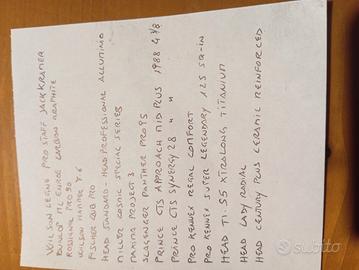 WILSON LEGNO PRO STAFF JACK KRAMER
DUNLOP MC ENROE CARBON GRAPHITE
ROSSIGNOL PRO 80
WILSON HAMMER
FISCHER PRO
HEAD STANDARD - HEAD PROFESSIONAL ALLUMINIO
MILLER COSMIC SPECIAL SERIES
MAXIMA PROJECT 3
SLAZENGER PANTHER PRO 95
PRINCE CTS APPROACH MID PLUS 1988 4 3/8
PRINCE CTS SYNERGY 28 " "
PRO KENNEX REGAL COMFORT
PRO KENNEX SUPER LEGENDARY 125 SQ-IN
HEAD TI. S5 XTRALONG TITANIUM
HEAD LADY RADIAL
HEAD CENTURY PLUS CERAMIC REINFORCED
subito